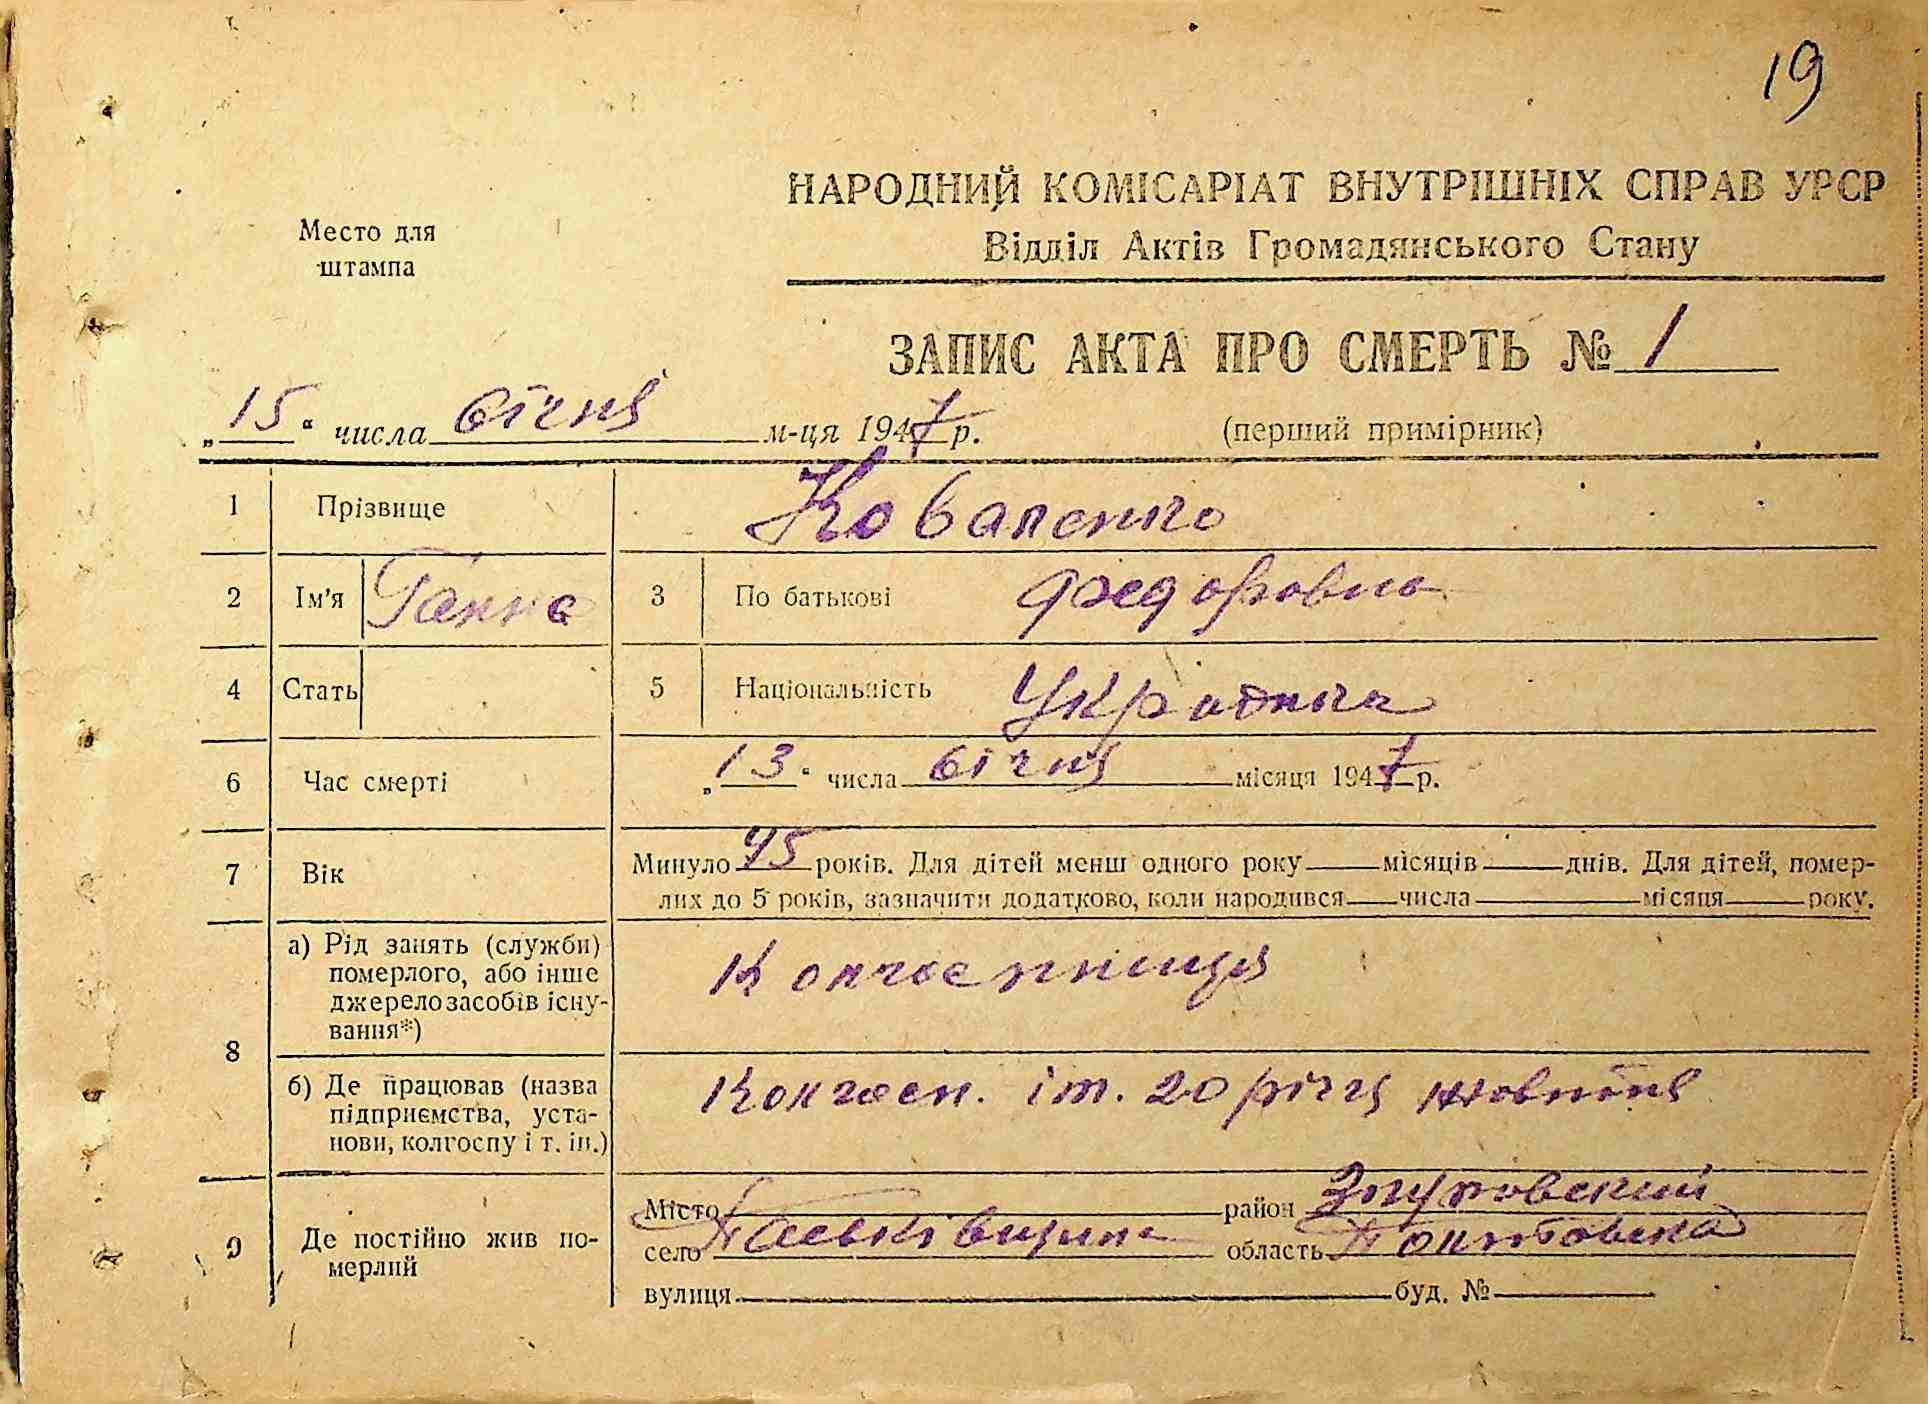 19
НАРОДНИЙ КОМІСАРІАТ ВНУТРІШНІХ СПРАВ УРСР
Відділ Актів Громадянського Стану
Место для
штампа
ЗАПИС АКТА ПРО СМЕРТЬ № 1
„15“ числа січня м-ця 1947 р. (перший примірник)
1 Прізвище Коваленко
2 Ім'я Ганна 3 По батькові Федоровна
4 Стать 5 Національність Українка
6 Час смерті „13“ числа січня місяця 1947 р.
7 Вік Минуло 45 років. Для дітей менш одного року місяців днів. Для дітей, помер-
лих до 5 років, зазначити додатково, коли народився числа місяця року.
8 а) Рід занять (служби)
померлого, або інше
джерело засобів існу-
вання*)
Колгоспниця
б) Де працював (назва
підприємства, уста-
нови, колгоспу і т. ін.)
Колгосп. ім. 20 річчя жовтня
9 Де постійно жив по-
мерлий
Місто район Згуровский
село Паськівщина область Полтавська
вулиця буд. №